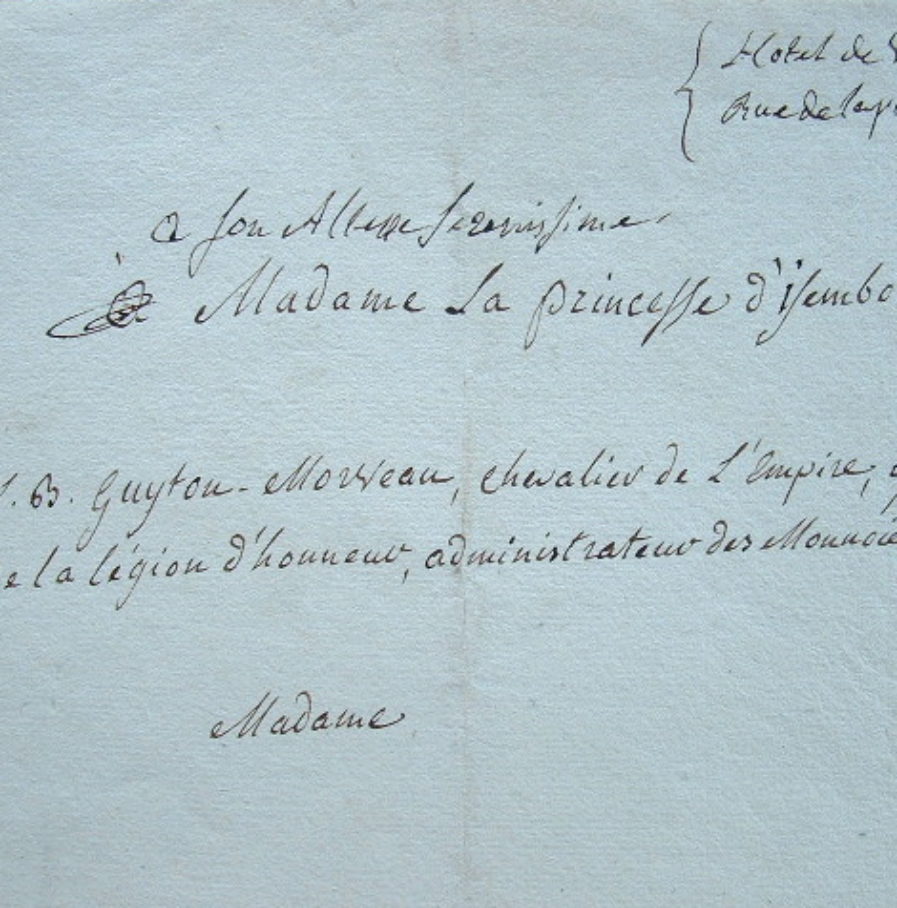 Hotel de
Rue de la p
a son Altesse serenissime
Madame La princesse d'isembo
. B. Guyton-Morveau, chevalier de L'Empire,
e la légion d'honneur, administrateur des Monnoie
Madame